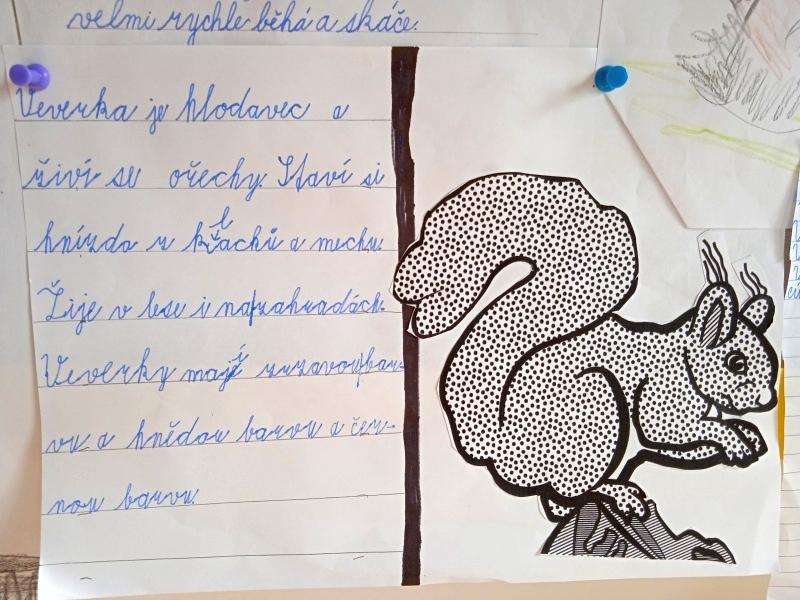 velmi rychle běhá a skáče.
Veverka je hlodavec a
živí se ořechy. Staví si
hnízda z klacků a mechu.
Žije v lese i na zahradách.
Veverky mají zrzavou bar-
vu a hnědou barvu a čer-
nou barvu.